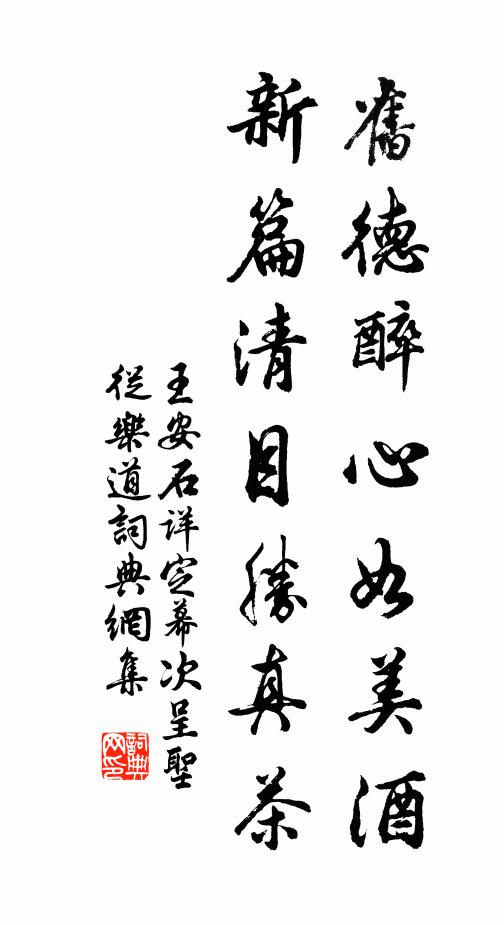 舊德醉心如美酒
新篇清目勝真茶
王安石詳定幕次呈聖
從樂道詞典網集
詞典
网印